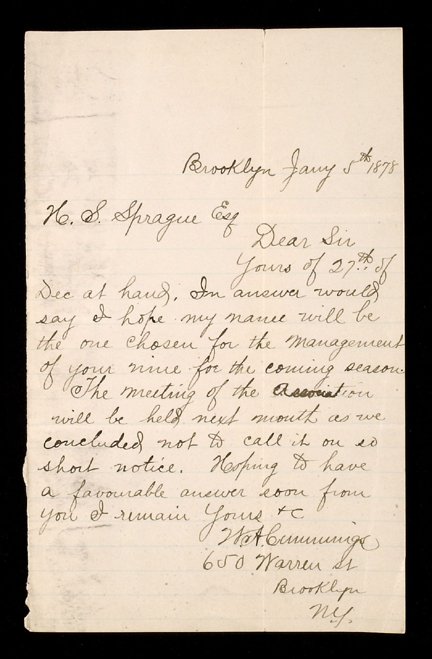 Brooklyn Jany 5th 1878
H. S. Sprague Esq
Dear Sir
Yours of 27th of
Dec at hand. In answer would
say I hope my name will be
the one chosen for the management
of your nine for the coming season
The meeting of the Association
will be held next mouth as we
concluded not to call it on so
short notice. Hoping to have
a favourable answer soon from
you I remain Yours &c
Wm A Cummings
650 Warren St
Brooklyn
N.Y.